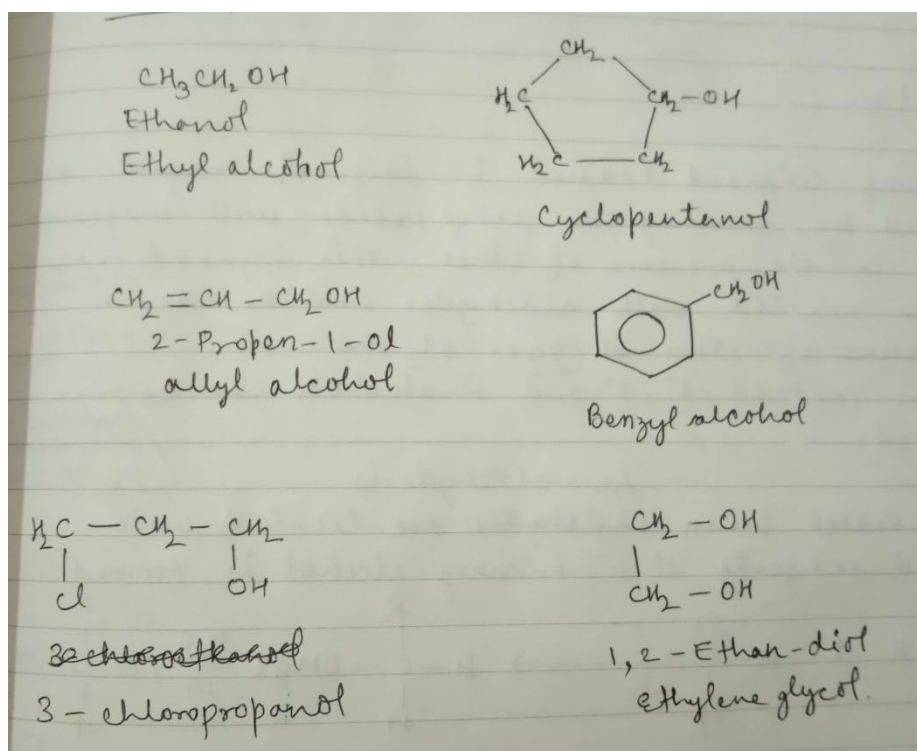 CH3CH2OH
Ethanol
Ethyl alcohol
CH2
H2C CH2-OH
H2C — CH2
Cyclopentanol
CH2 = CH - CH2OH
2-Propen-1-ol
allyl alcohol
CH2OH
Benzyl alcohol
H2C — CH2 - CH2
Cl OH
3-chloropropanol
CH2 - OH
CH2 - OH
1,2-Ethan-diol
Ethylene glycol.